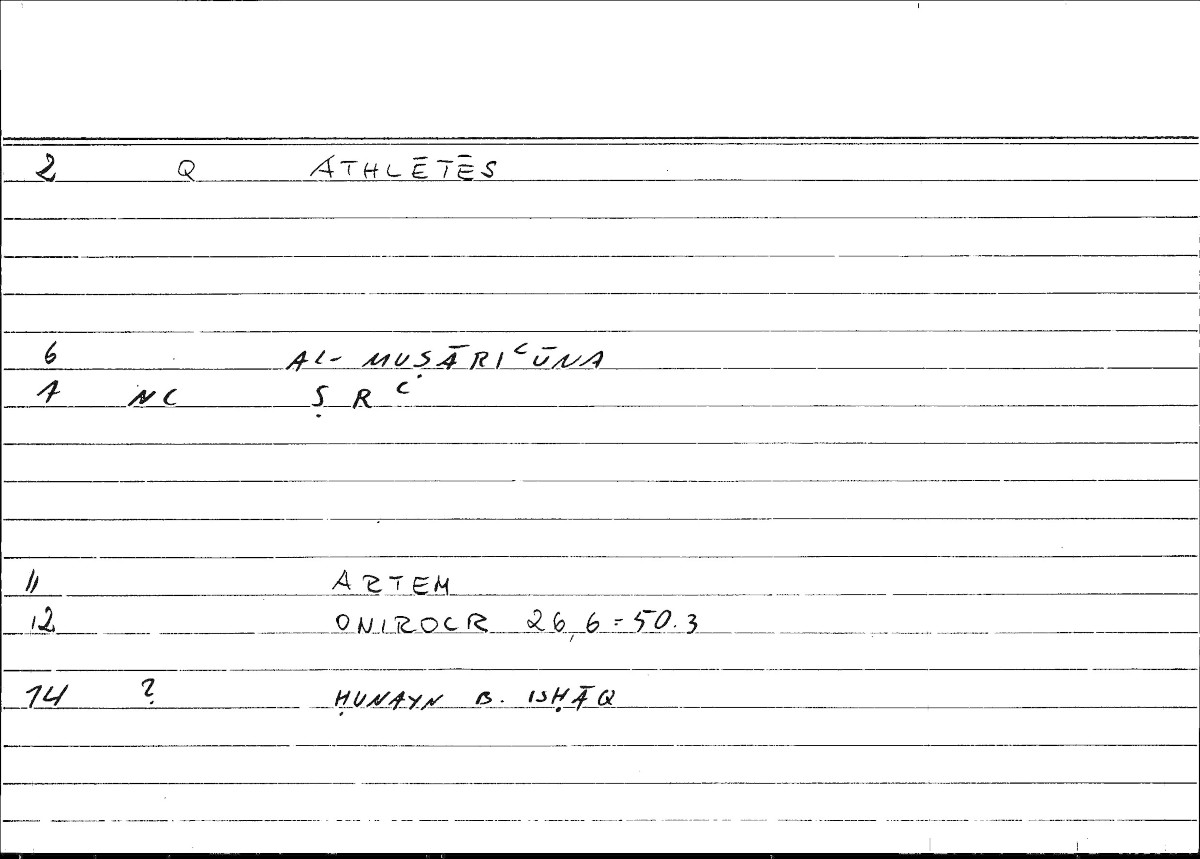 2 Q ATHLĒTĒS
6 AL-MUṢĀRIʿŪNA
7 NC Ṣ R ʿ
11 ARTEM
12 ONIROCR 26,6=50.3
14 ? ḤUNAYN B. ISḤĀQ